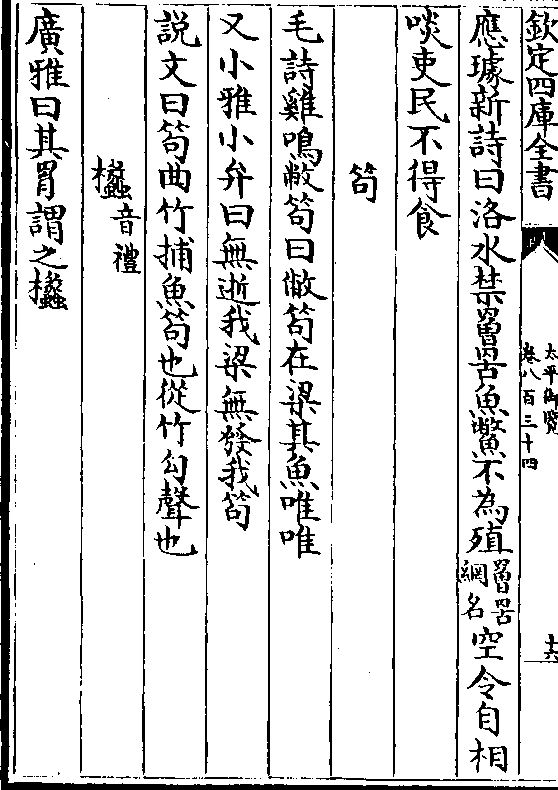 欽定四庫全書
太平御覽
卷八百三十四
十六
應璩新詩曰洛水禁罾罟魚鼈不為殖罾罟網名空令自相
啖吏民不得食
笱
毛詩雞鳴敝笱曰敝笱在梁其魚唯唯
又小雅小弁曰無逝我梁無發我笱
説文曰笱曲竹捕魚笱也從竹勾聲也
欚音禮
廣雅曰其罥謂之欚